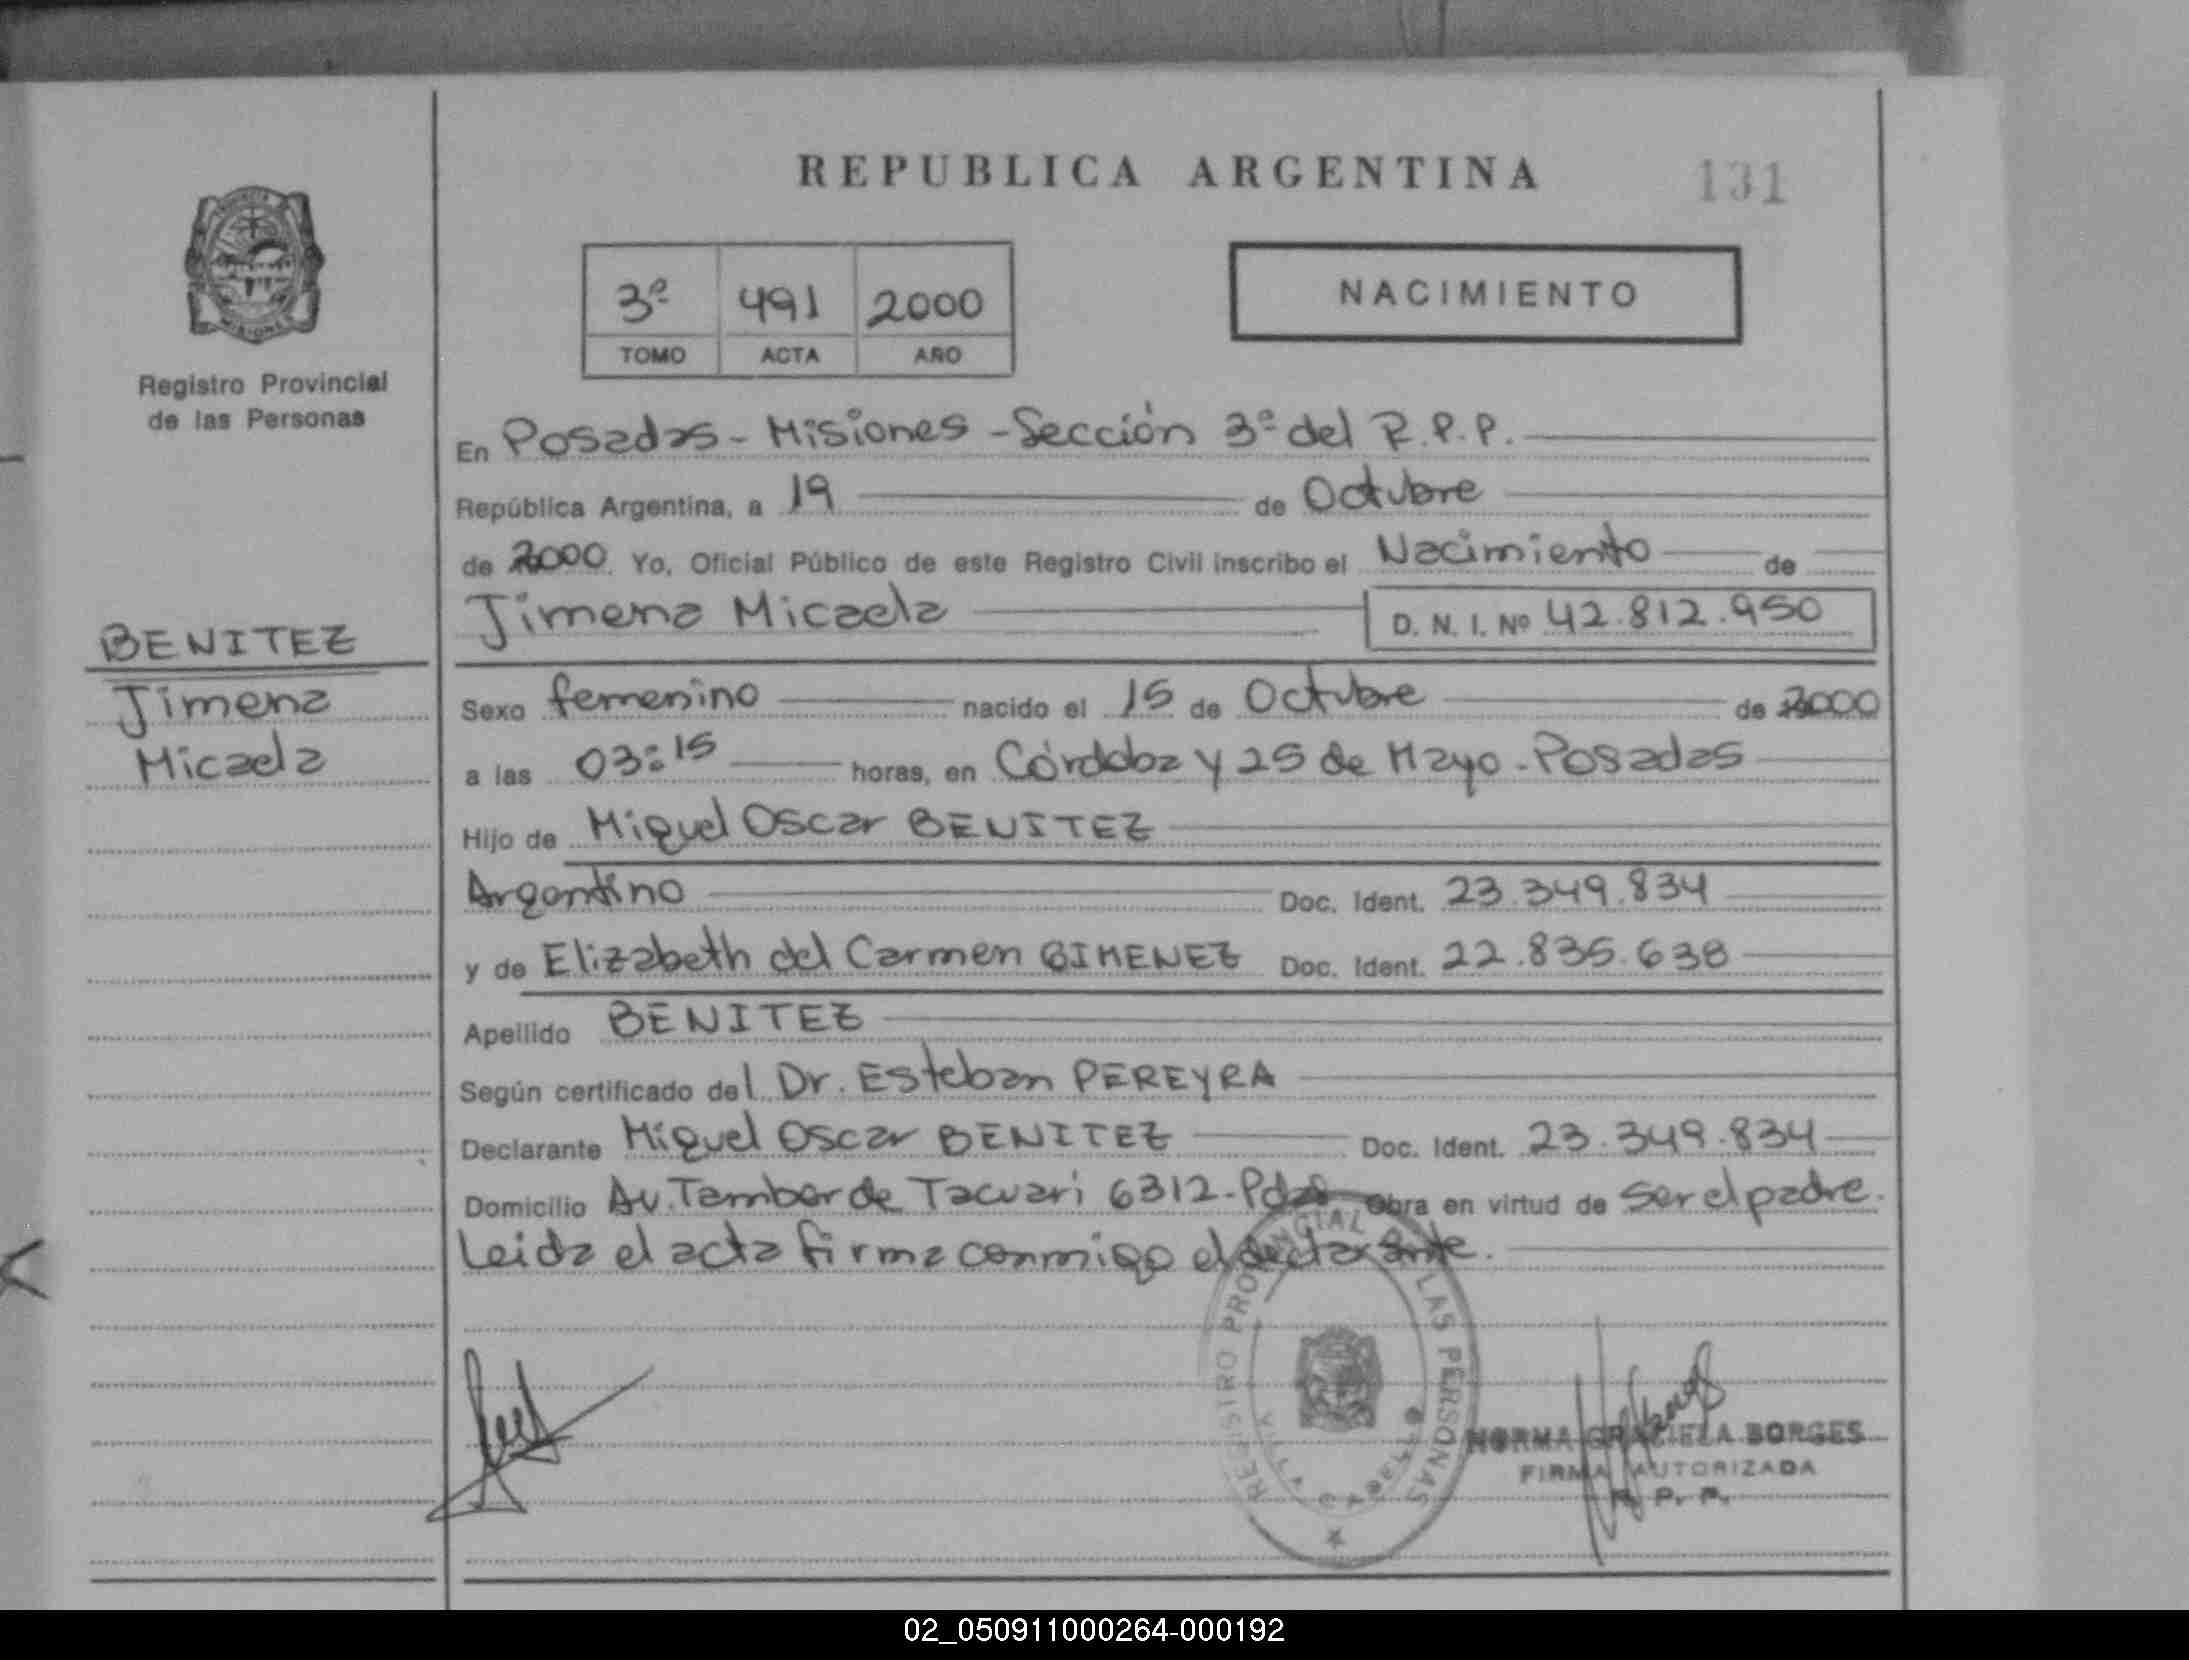 REPUBLICA ARGENTINA
131
3º 491 2000
TOMO ACTA AÑO
NACIMIENTO
PROVINCIA
MISIONES
Registro Provincial
de las Personas
En Posadas - Misiones - Sección 3º del R.P.P.
República Argentina, a 19 de Octubre
de 2000. Yo, Oficial Público de este Registro Civil inscribo el Nacimiento de
Jimena Micaela D. N. I. Nº 42.812.950
BENITEZ
Jimena
Micaela
Sexo femenino nacido el 15 de Octubre de 2000
a las 03:15 horas, en Córdoba y 25 de Mayo - Posadas
Hijo de Miguel Oscar BENITEZ
Argentino Doc. Ident. 23.349.834
y de Elizabeth del Carmen GIMENEZ Doc. Ident. 22.835.638
Apellido BENITEZ
Según certificado del Dr. Esteban PEREYRA
Declarante Miguel Oscar BENITEZ Doc. Ident. 23.349.834
Domicilio Av. Tambor de Tacuari 6312 - Pdas Obra en virtud de ser el padre.
Leida el acta firma conmigo el declarante.
REGISTRO PROVINCIAL DE LAS PERSONAS
VILLA CABELLO
NORMA GRACIELA BORGES
FIRMA AUTORIZADA
R. P. P.
02_050911000264-000192